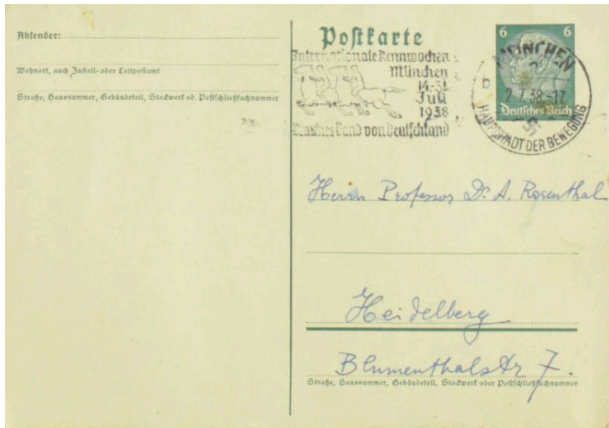 Absender:
Wohnort, auch Zustell- oder Leitpostamt
Straße, Hausnummer, Gebäudeteil, Stockwerk od. Postschließfachnummer
Postkarte
Internationale Rennwochen
München
14-31
Juli
1938
Braunes Band von Deutschland
6 6
Deutsches Reich
MÜNCHEN
2.7.38.-17
HAUPTSTADT DER BEWEGUNG
Herrn Professor Dr. A. Rosenthal
Heidelberg
Blumenthalstr 7.
Straße, Hausnummer, Gebäudeteil, Stockwerk oder Postschließfachnummer